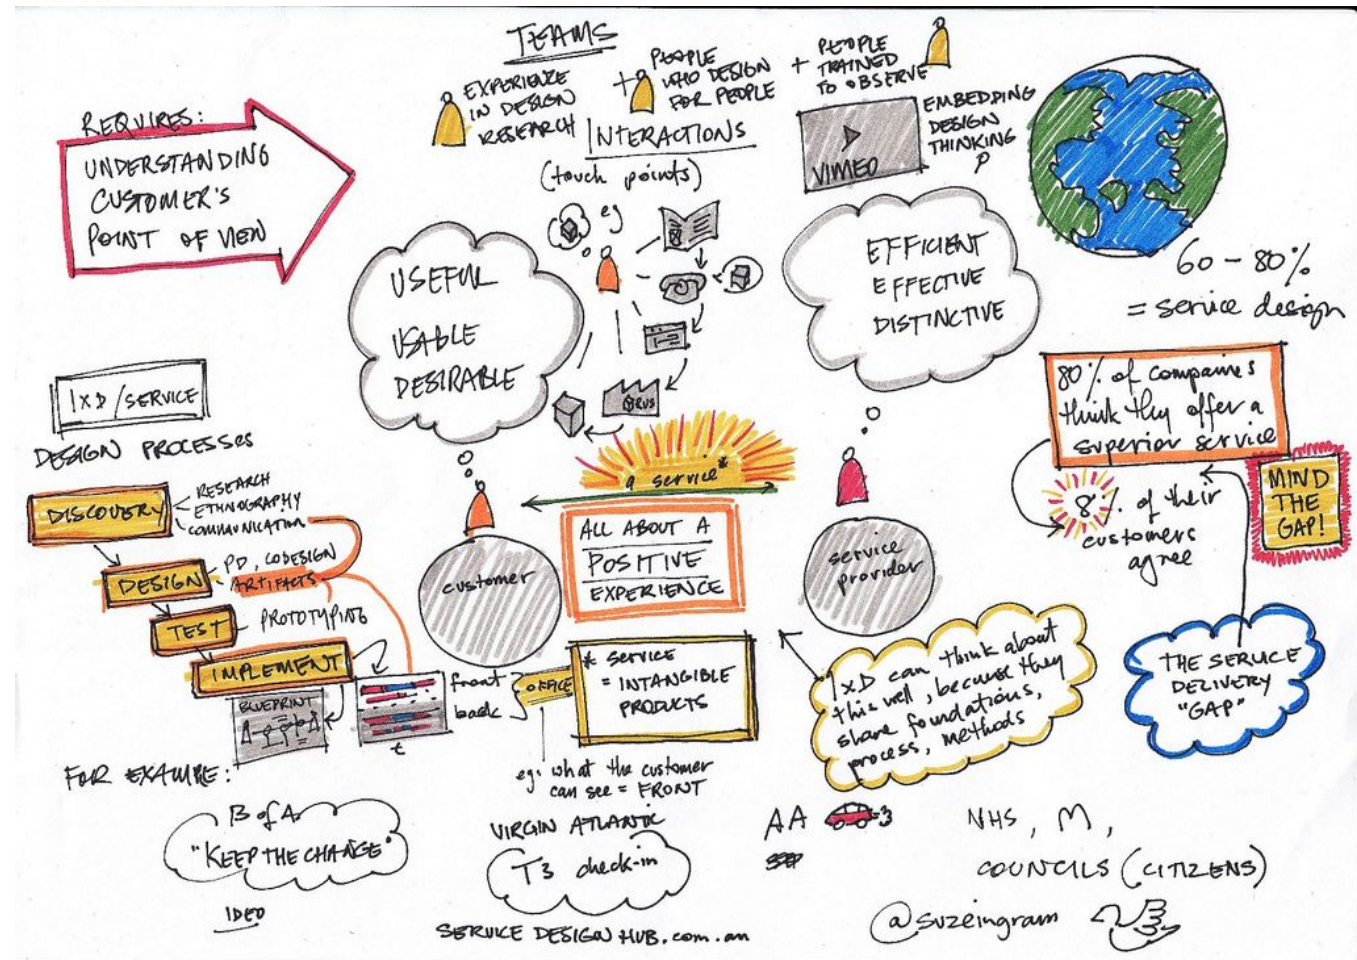 TEAMS
EXPERIENCE
IN DESIGN
RESEARCH
+ PEOPLE
WHO DESIGN
FOR PEOPLE
+ PEOPLE
TRAINED
TO OBSERVE
VIMEO
EMBEDDING
DESIGN
THINKING
REQUIRES:
UNDERSTANDING
CUSTOMER'S
POINT OF VIEW
INTERACTIONS
(touch points)
eg
USEFUL
USABLE
DESIRABLE
EFFICIENT
EFFECTIVE
DISTINCTIVE
60 - 80%
= service design
80% of companies
think they offer a
superior service
8% of their
customers
agree
MIND
THE
GAP!
THE SERVICE
DELIVERY
"GAP"
IXD/SERVICE
DESIGN PROCESSES
DISCOVERY
RESEARCH
ETHNOGRAPHY
COMMUNICATION
DESIGN
PD, CODESIGN
ARTIFACTS
TEST
PROTOTYPING
IMPLEMENT
BLUEPRINT
front
back
t
OFFICE
eg: what the customer
can see = FRONT
customer
a service*
ALL ABOUT A
POSITIVE
EXPERIENCE
service
provider
* SERVICE
= INTANGIBLE
PRODUCTS
IXD can think about
this well, because they
share foundations,
process, methods
FOR EXAMPLE:
B of A
"KEEP THE CHANGE"
IDEO
VIRGIN ATLANTIC
T3 check-in
AA
NHS, M,
COUNCILS (CITIZENS)
SERVICE DESIGN HUB.com.au
@suzeingram